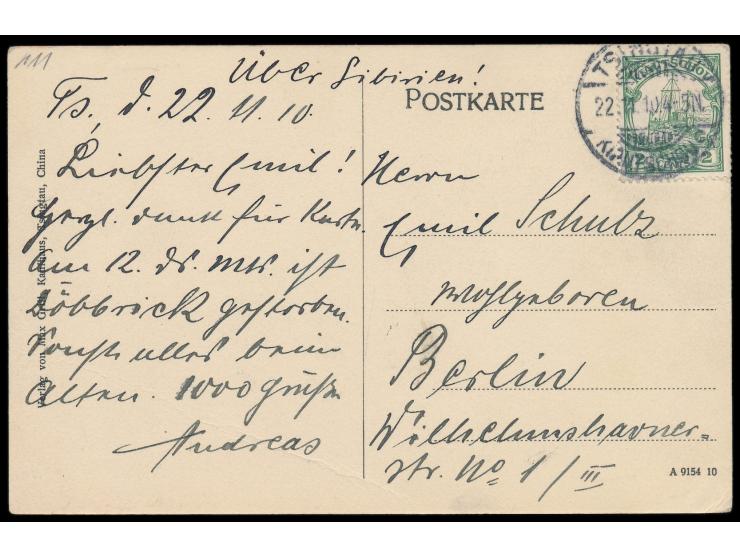 111
Über Sibirien!
Ts, d. 22. 11. 10.
POSTKARTE
TSINGTAU
KIAUTSCHOU
22.11.10.4-5N.
2
Liebster Emil!
Herzl. Dank für Karte.
am 12. ds. Mts. ist
Löbbrick gestorben.
Sonst alles beim
Alten. 1000 Grüße
Andreas
Herrn
Emil Schulz
Wohlgeboren
Berlin
Wilhelmshavener-
str. No 1/III
Verlag von Max Grill, Kaufhaus, Tsingtau, China
A 9154 10